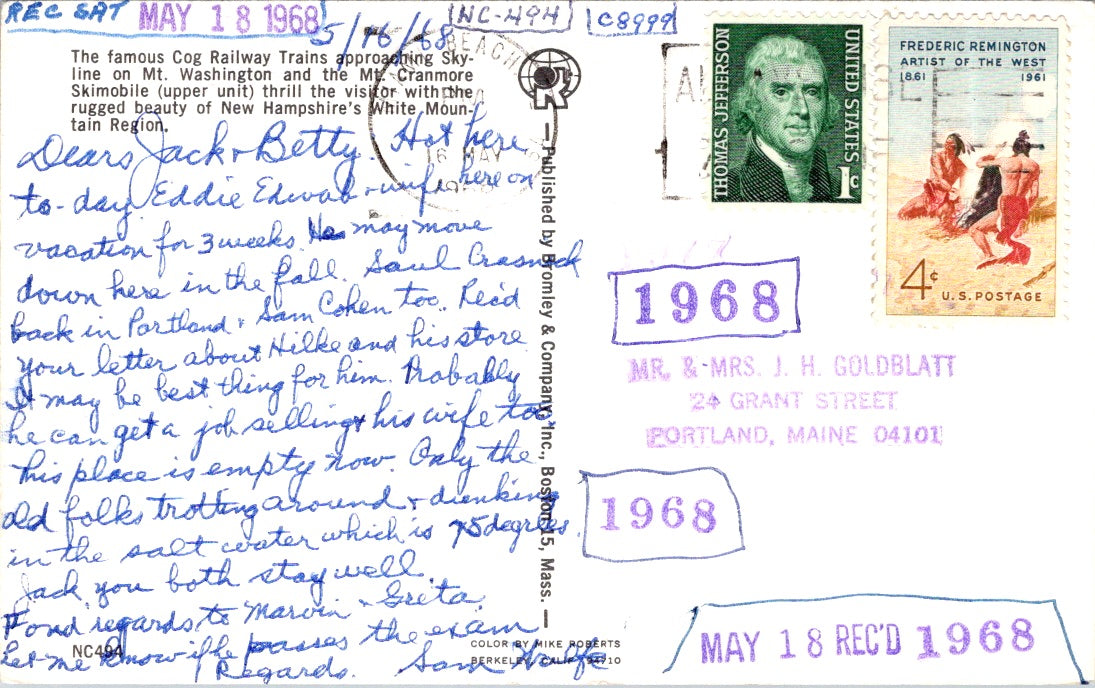 REC SAT MAY 18 1968
5/16/68
NC-494
C8999
The famous Cog Railway Trains approaching Sky-
line on Mt. Washington and the Mt. Cranmore
Skimobile (upper unit) thrill the visitor with the
rugged beauty of New Hampshire's White Moun-
tain Region.
Dears Jack & Betty. Hot here
to-day. Eddie & wife here on
vacation for 3 weeks. He may move
down here in the fall. Saul
back in Portland & Sam Cohen too. Rec'd
your letter about Hilke and his store
It may be best thing for him. Probably
he can get a job selling & his wife too.
This place is empty now. Only the
old folks trotting around & dunking
in the salt water which is 75 degrees.
Jack you both stay well.
Fond regards to Marvin & Greta.
Let me know if he passes the exam
Regards. Sam Wolfe
NC494
Published by Bromley & Company, Inc., Boston 15, Mass.
COLOR BY MIKE ROBERTS
BERKELEY, CALIF 94710
BEACH
16 MAY
THOMAS JEFFERSON
UNITED STATES
1c
FREDERIC REMINGTON
ARTIST OF THE WEST
1861 1961
4c U.S. POSTAGE
1968
MR. & MRS. J. H. GOLDBLATT
24 GRANT STREET
PORTLAND, MAINE 04101
1968
MAY 18 REC'D 1968